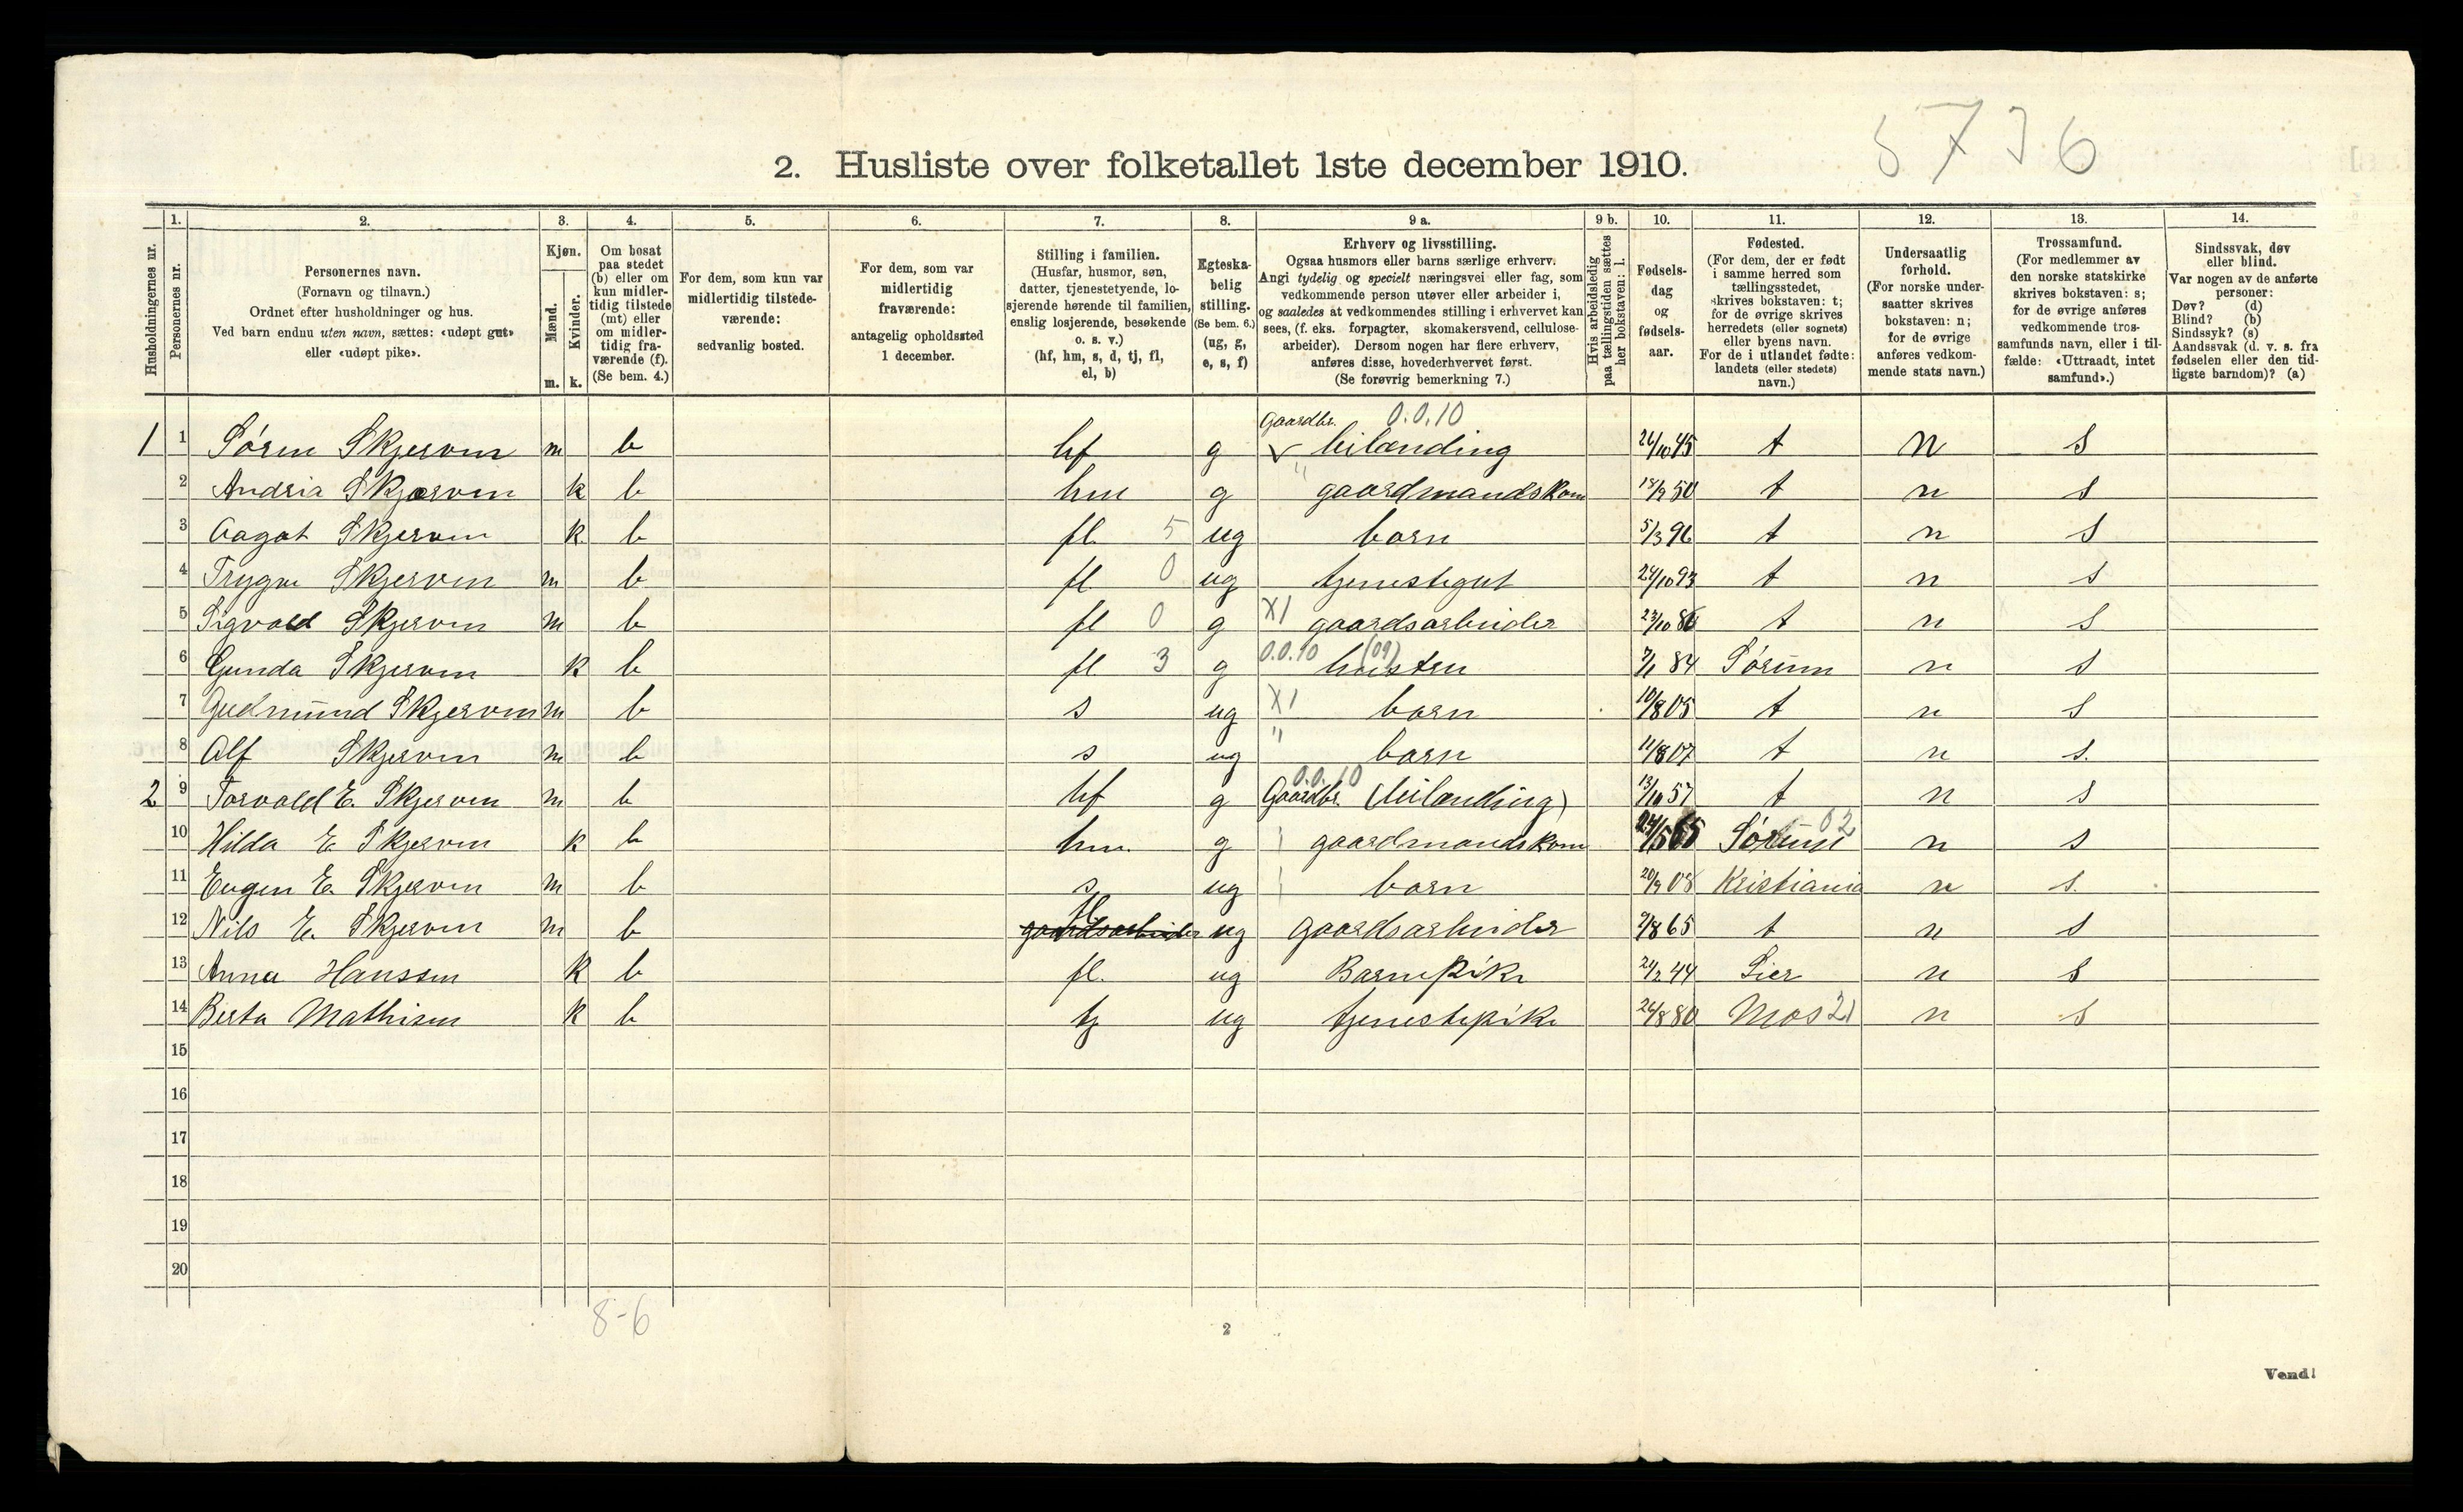 5736
2. Husliste over folketallet 1ste december 1910.
Husholdningernes nr.
1. Personernes nr.
2. Personernes navn. (Fornavn og tilnavn.) Ordnet efter husholdninger og hus. Ved barn endnu uten navn, sættes: «udøpt gut» eller «udøpt pike».
3. Kjøn. Mænd. m. Kvinder. k.
4. Om bosat paa stedet (b) eller om kun midlertidig tilstede (mt) eller om midlertidig fraværende (f). (Se bem. 4.)
5. For dem, som kun var midlertidig tilstedeværende: sedvanlig bosted.
6. For dem, som var midlertidig fraværende: antagelig opholdssted 1 december.
7. Stilling i familien. (Husfar, husmor, søn, datter, tjenestetyende, losjerende hørende til familien, enslig losjerende, besøkende o. s. v.) (hf, hm, s, d, tj, fl, el, b)
8. Egteskabelig stilling. (Se bem. 6.) (ug, g, e, s, f)
9 a. Erhverv og livsstilling. Ogsaa husmors eller barns særlige erhverv. Angi tydelig og specielt næringsvei eller fag, som vedkommende person utøver eller arbeider i, og saaledes at vedkommendes stilling i erhvervet kan sees, (f. eks. forpagter, skomakersvend, cellulosearbeider). Dersom nogen har flere erhverv, anføres disse, hovederhvervet først. (Se forøvrig bemerkning 7.)
9 b. Hvis arbeidsledig paa tællingstiden sættes her bokstaven: l.
10. Fødselsdag og fødselsaar.
11. Fødested. (For dem, der er født i samme herred som tællingsstedet, skrives bokstaven: t; for de øvrige skrives herredets (eller sognets) eller byens navn. For de i utlandet fødte: landets (eller stedets) navn.)
12. Undersaatlig forhold. (For norske undersaatter skrives bokstaven: n; for de øvrige anføres vedkommende stats navn.)
13. Trossamfund. (For medlemmer av den norske statskirke skrives bokstaven: s; for de øvrige anføres vedkommende trossamfunds navn, eller i tilfælde: «Uttraadt, intet samfund».)
14. Sindssvak, døv eller blind. Var nogen av de anførte personer: Døv? (d) Blind? (b) Sindssyk? (s) Aandssvak (d. v. s. fra fødselen eller den tidligste barndom)? (a)
Gaardbr. 0.0.10
1 1 Søren Skjerven m b hf g leilænding 26/10 45 t n s
2 Andria Skjerven k b hm g " gaardmandskone 18/9 50 t n s
3 Aagot Skjerven k b fl 5 ug barn 5/3 96 t n s
4 Trygve Skjerven m b fl 0 ug tjenestegut 24/10 93 t n s
5 Sigvald Skjerven m b fl 0 g X1 gaardsarbeider 23/10 86 t n s
6 Gunda Skjerven k b fl 3 g 0.0.10 (09) hustru 7/1 84 Sørum n s
7 Gudmund Skjerven m b s ug X1 barn 10/8 05 t n s
8 Alf Skjerven m b s ug " barn 11/8 07 t n s.
0.0.10
2 9 Torvald E. Skjerven m b hf g Gaardbr. (leilænding) 13/10 57 t n s
10 Hilda E Skjerven k b hm. g gaardmandskone 24/5 65 Sørum 02 n s
11 Eugen E. Skjerven m b s ug barn 20/9 08 Kristiania n s.
12 Nils E. Skjerven m b gaardsarbeider fl ug gaardsarbeider 9/8 65 t n s
13 Anna Hanssen k b fl. ug Barnepike 21/2 44 Lier n s
14 Berta Mathisen k b tj ug tjenestepike 26/8 80 Mos 21 n s
15
16
17
18
19
20
8-6
2
Vend!